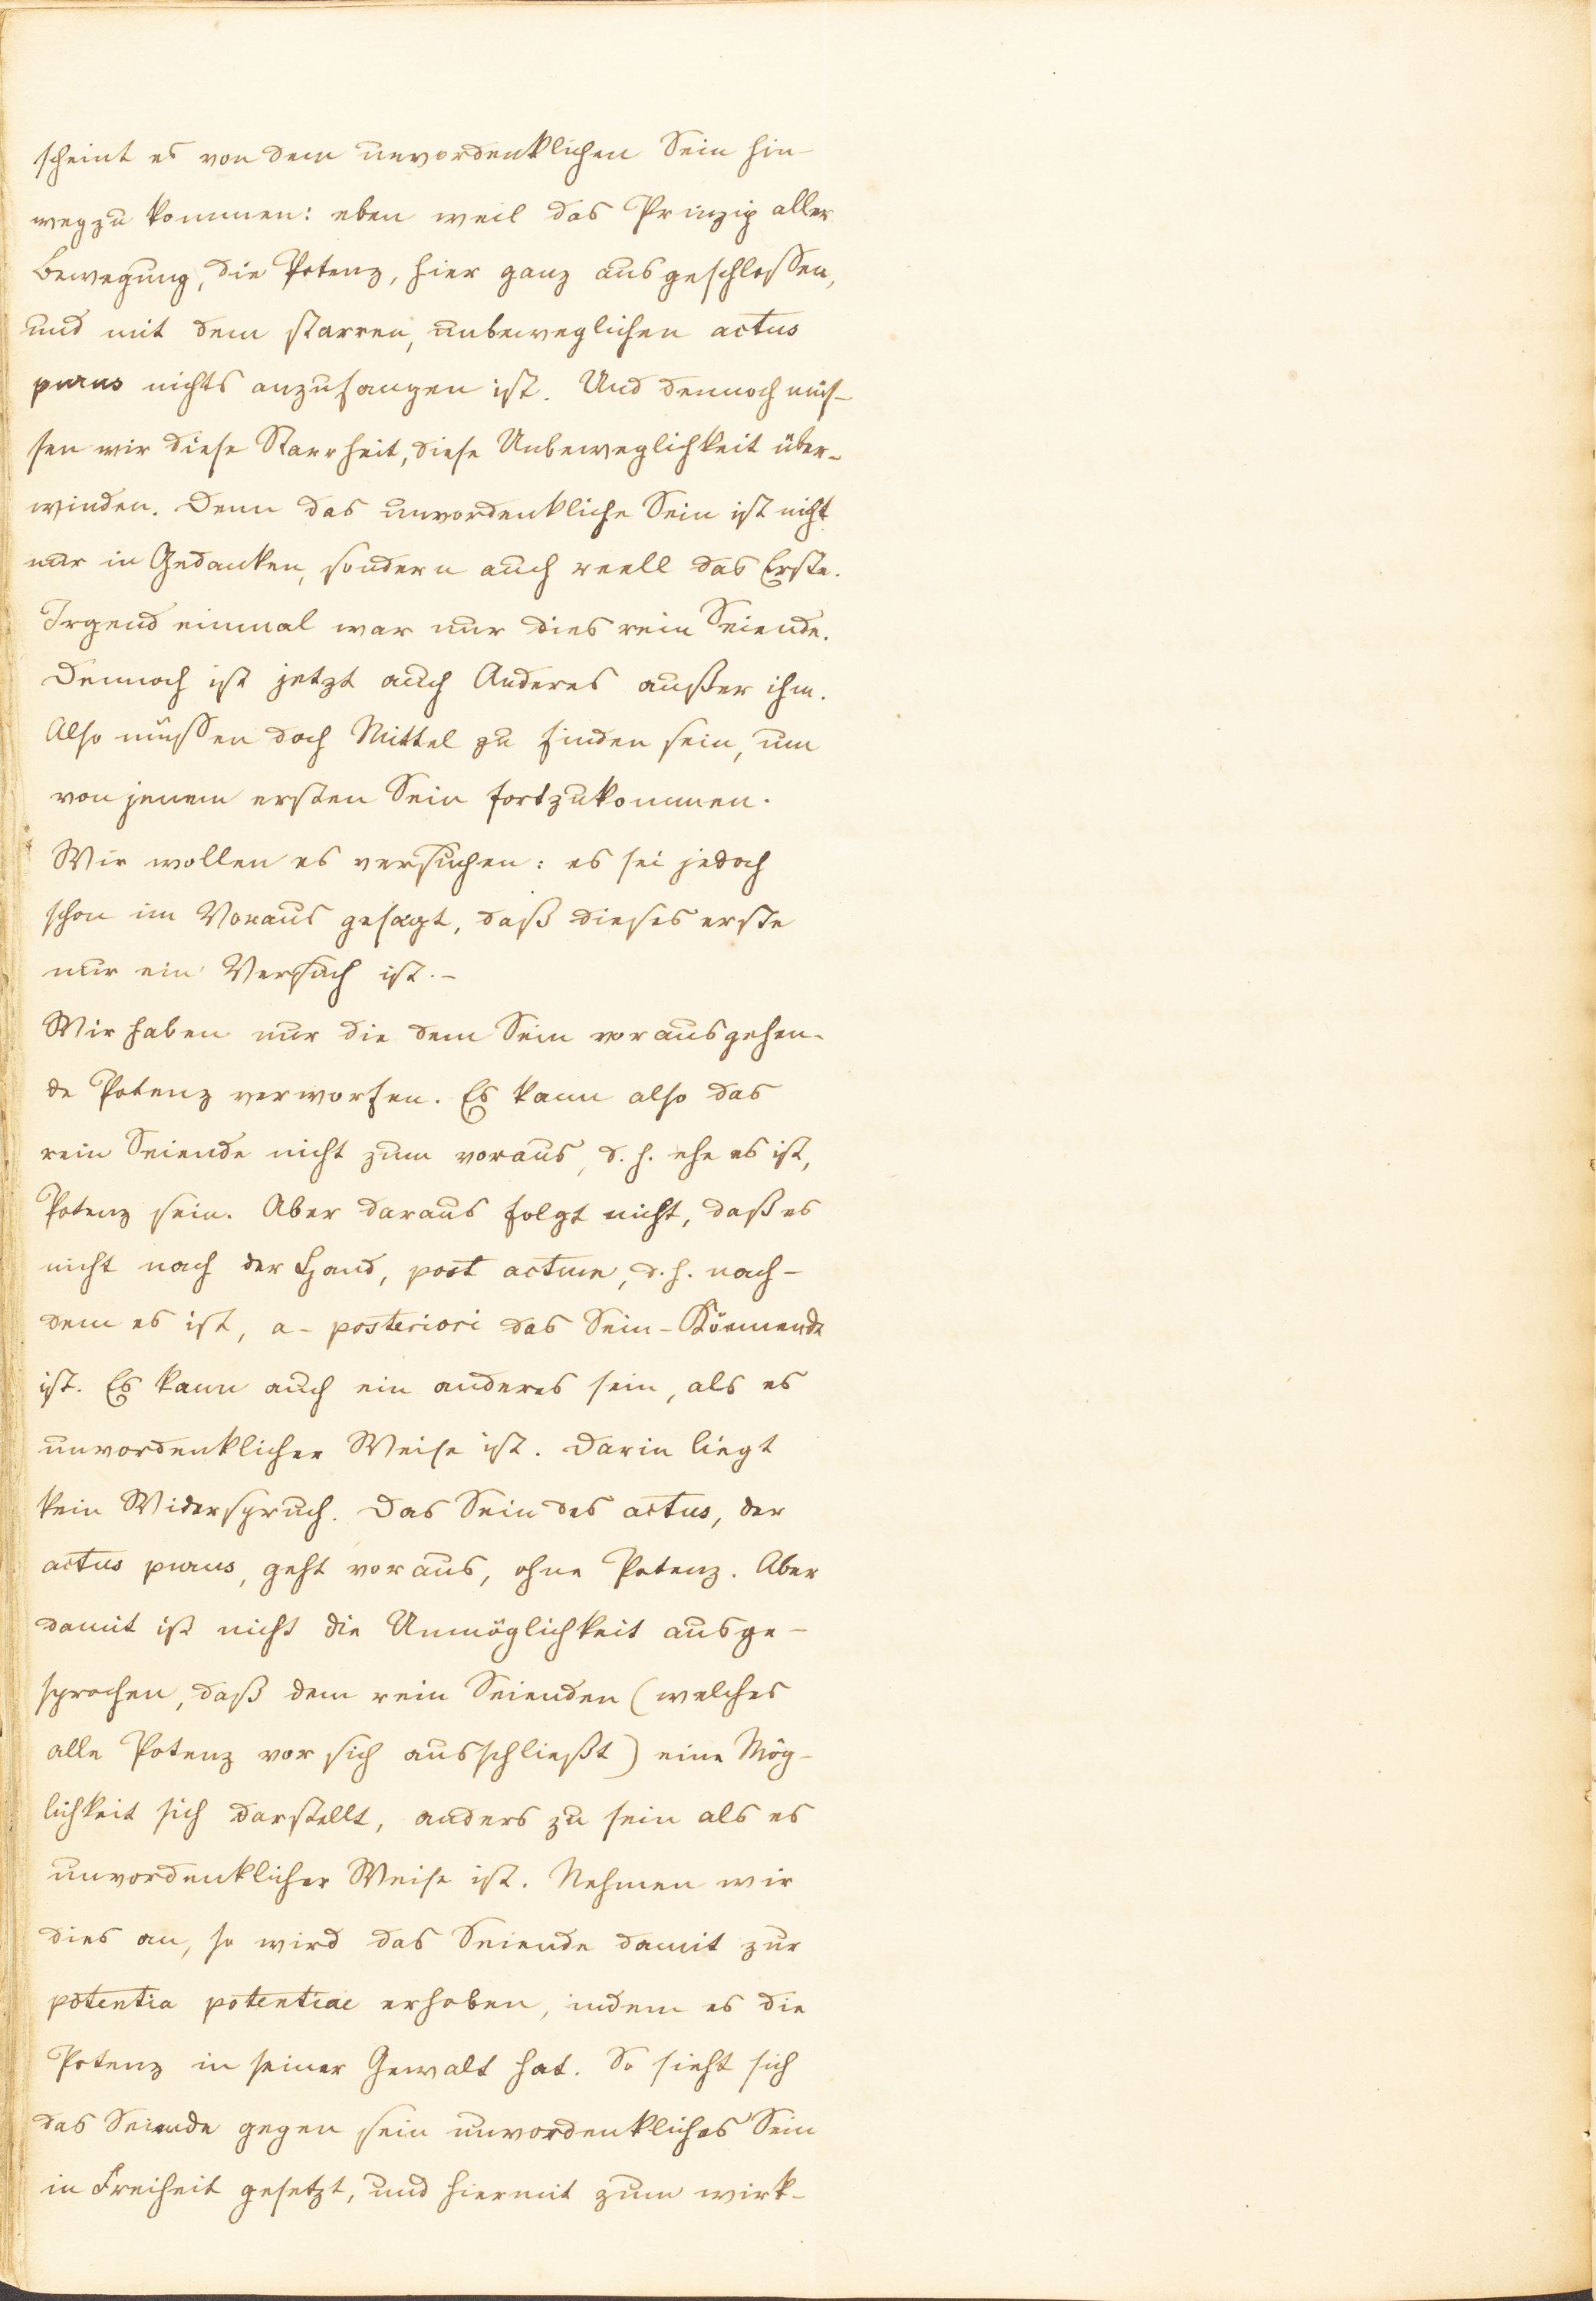 scheint es von dem unvordenklichen Sein hin-
wegzukommen: eben weil das Prinzip aller
Bewegung, die Potenz, hier ganz ausgeschlossen,
und mit dem starren, unbeweglichen actus
purus nichts anzufangen ist. Und dennoch müs-
sen wir diese Starrheit, diese Unbeweglichkeit über-
winden. Denn das unvordenkliche Sein ist nicht
nur in Gedanken, sondern auch reell das Erste.
Irgend einmal war nur dies rein Seiende.
Dennoch ist jetzt auch Anderes außer ihm.
Also müssen doch Mittel zu finden sein, um
von jenem ersten Sein fortzukommen.
Wir wollen es versuchen: es sei jedoch
schon im Voraus gesagt, daß dieses erste
nur ein Versuch ist.-
Wir haben nur die dem Sein vorausgehen-
de Potenz verworfen. Es kann also das
rein Seiende nicht zum voraus, d. h. ehe es ist,
Potenz sein. Aber daraus folgt nicht, daß es
nicht nach der Hand, post actum, d. h. nach-
dem es ist, a-posteriori das Sein-Könnende
ist. Es kann auch ein anderes sein, als es
unvordenklicher Weise ist. Darin liegt
kein Widerspruch. Das Sein des actus, der
actus purus, geht voraus, ohne Potenz. Aber
damit ist nicht die Unmöglichkeit ausge-
sprochen, daß dem rein Seienden (welches
alle Potenz vor sich ausschließt) eine Mög-
lichkeit sich darstellt, anders zu sein als es
unvordenklicher Weise ist. Nehmen wir
dies an, so wird das Seiende damit zur
potentia potentiae erhoben, indem es die
Potenz in seiner Gewalt hat. So sieht sich
das Seiende gegen sein unvordenkliches Sein
in Freiheit gesetzt, und hiermit zum wirk-